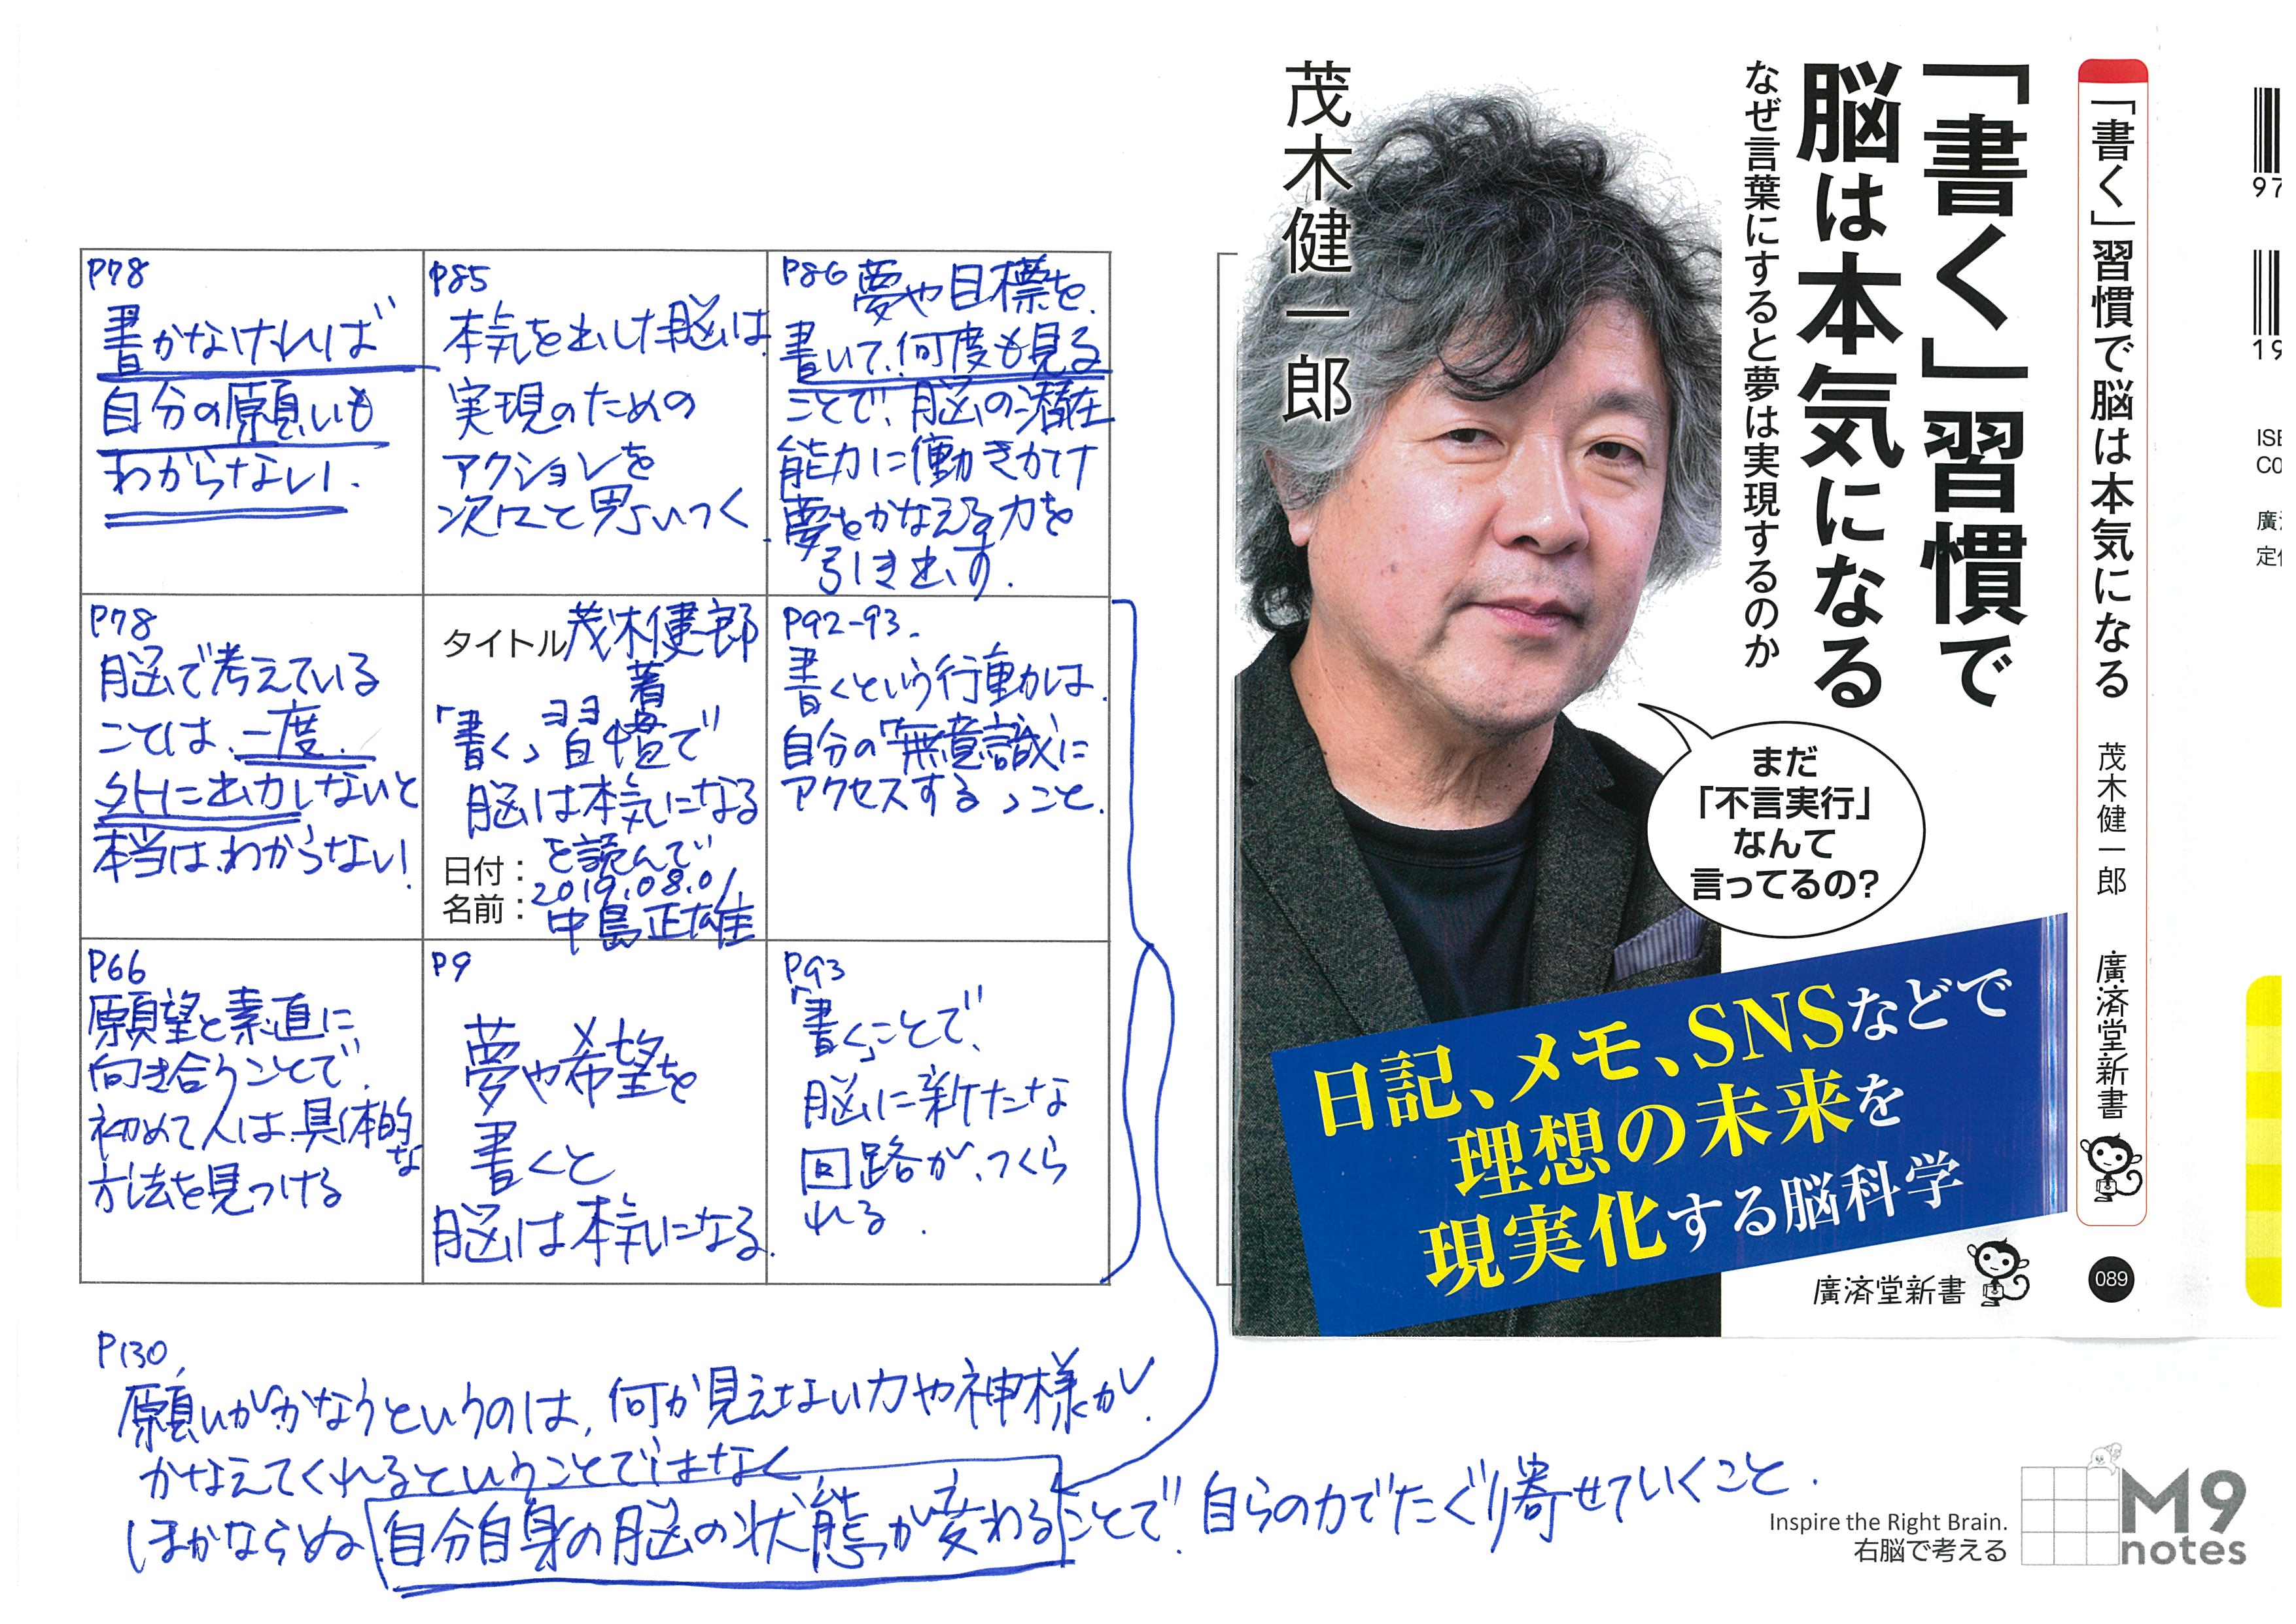 P78
書かなければ
自分の願いも
わからない!
P85
本気を出した脳は
実現のための
アクションを
次々と思いつく
P86 夢や目標を
書いて、何度も見る
ことで、脳の潜在
能力に働きかけ
夢をかなえる力を
引き出す.
P78
脳で考えている
ことは、一度
外に出力しないと
本当はわからない!
タイトル 茂木健一郎
著
「書く」習慣で
脳は本気になる
を読んで
日付：2019.08.01
名前：中島正雄
P92-93.
書くという行動は
自分の「無意識に
アクセスする」こと.
P66
願望と素直に
向き合うことで
初めて人は具体的な
方法を見つける
P9
夢や希望を
書くと
脳は本気になる.
P93
「書く」ことで、
脳に新たな
回路が、つくら
れる.
P130
願いがかなうというのは、何か見えない力や神様が
かなえてくれるということではなく
ほかならぬ自分自身の脳の状態が変わることで自らの力でたぐり寄せていくこと.
茂木健一郎
「書く」習慣で
脳は本気になる
なぜ言葉にすると夢は実現するのか
まだ
「不言実行」
なんて
言ってるの?
日記、メモ、SNSなどで
理想の未来を
現実化する脳科学
廣済堂新書
「書く」習慣で脳は本気になる 茂木健一郎 廣済堂新書
089
97
19
C0
Inspire the Right Brain.
右脳で考える
M9
notes